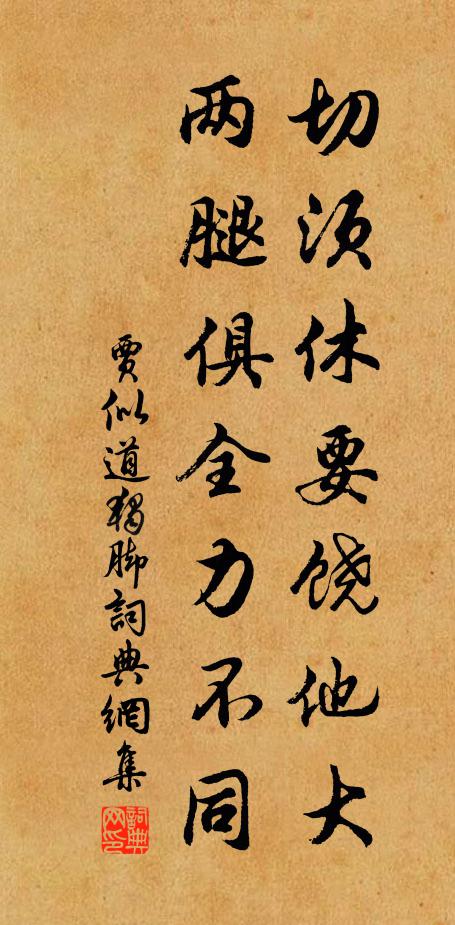 切须休要饶他大
两腿俱全力不同
賈似道獨脚詞典網集
詞典网印